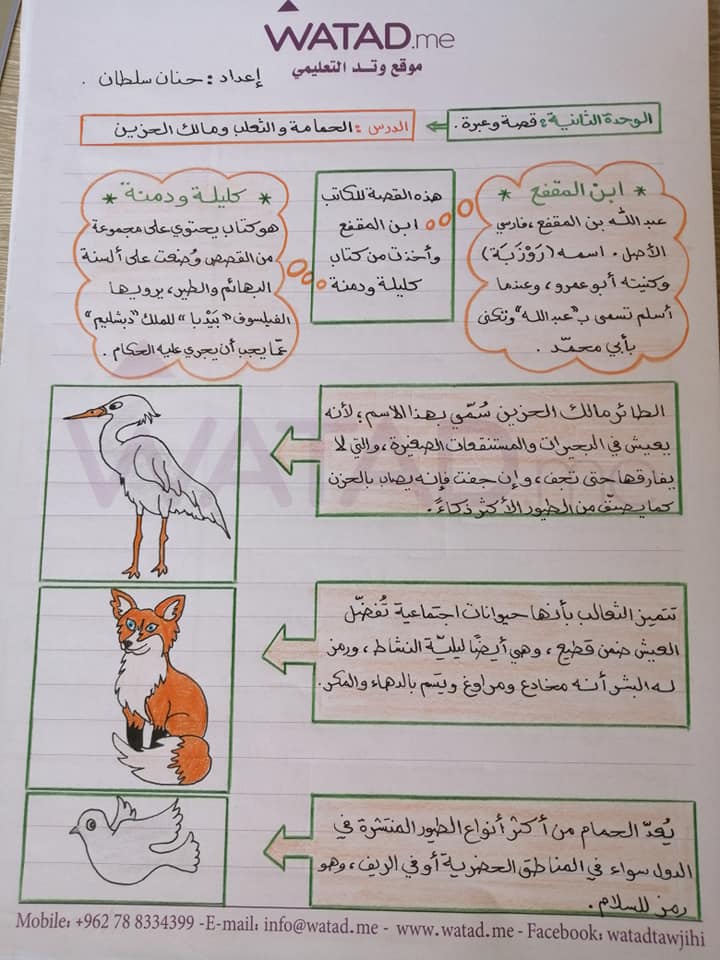 WATAD.me
موقع وتد التعليمي
إعداد : حنان سلطان .
الوحدة الثانية : قصة وعبرة .
الدرس : الحمامة والثعلب ومالك الحزين
* ابن المقفع *
عبد الله بن المقفع ، فارسي
الأصل . اسمه (رَوْزَبَة)
وكنيته أبو عمرو ، وعندما
أسلم تسمى بـ "عبد الله" وتكنى
بأبي محمّد .
هذه القصة للكاتب
ابن المقفع
وأخذت من كتاب
كليلة ودمنة
* كليلة ودمنة *
هو كتاب يحتوي على مجموعة
من القصص وُضعت على ألسنة
البهائم والطير، يرويها
الفيلسوف "بَيْدبا" للملك "دبشليم"
عمّا يجب أن يجري عليه الحكام .
الطائر مالك الحزين سُمّي بهذا الاسم ؛ لأنه
يعيش في البحيرات والمستنقعات الصغيرة ، والتي لا
يفارقها حتى تجف ، وإن جفت فإنه يصاب بالحزن
كما يصنّف من الطيور الأكثر ذكاءً.
تتميز الثعالب بأنها حيوانات اجتماعية تُفضّل
العيش ضمن قطيع ، وهي أيضًا ليليّة النشاط ، ورمز
له البشر أنه مخادع ومراوغ ويتسم بالدهاء والمكر.
يُعدّ الحمام من أكثر أنواع الطيور المنتشرة في
الدول سواء في المناطق الحضرية أو في الريف ، وهو
رمز للسلام .
Mobile: +962 78 8334399 -E-mail: info@watad.me - www.watad.me - Facebook: watadtawjihi